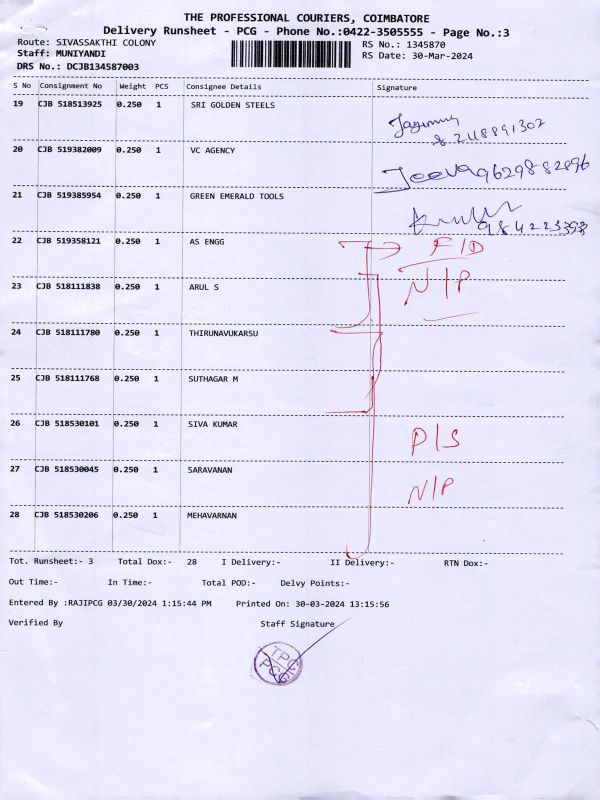 THE PROFESSIONAL COURIERS, COIMBATORE
Delivery Runsheet - PCG - Phone No.:0422-3505555 - Page No.:3
Route: SIVASSAKTHI COLONY RS No.: 1345870
Staff: MUNIYANDI RS Date: 30-Mar-2024
DRS No.: DCJB134587003
S No Consignment No Weight PCS Consignee Details Signature
19 CJB 518513925 0.250 1 SRI GOLDEN STEELS
8248891307
20 CJB 519382009 0.250 1 VC AGENCY
Jeeva 9629882896
21 CJB 519385954 0.250 1 GREEN EMERALD TOOLS
9842233393
22 CJB 519358121 0.250 1 AS ENGG F/D
23 CJB 518111838 0.250 1 ARUL S N/P
24 CJB 518111780 0.250 1 THIRUNAVUKARSU
25 CJB 518111768 0.250 1 SUTHAGAR M
26 CJB 518530101 0.250 1 SIVA KUMAR P/S
27 CJB 518530045 0.250 1 SARAVANAN N/P
28 CJB 518530206 0.250 1 MEHAVARNAN
Tot. Runsheet:- 3 Total Dox:- 28 I Delivery:- II Delivery:- RTN Dox:-
Out Time:- In Time:- Total POD:- Delvy Points:-
Entered By :RAJIPCG 03/30/2024 1:15:44 PM Printed On: 30-03-2024 13:15:56
Verified By Staff Signature
TPC
PCG